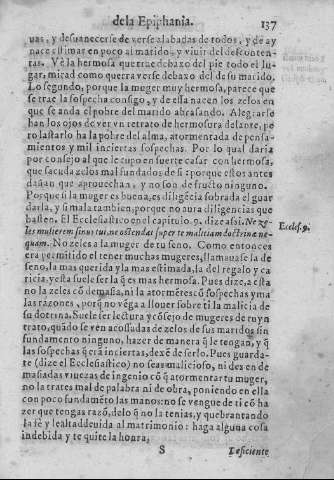 de la Epiphania. 137
uas, y desuanecerse de verse alabadas de todos, y de ay
nace estimar en poco al marido, y viuir del desconten-
tas. Vè la hermosa que trae debaxo del pie todo el lu-
gar, mirad como querra verse debaxo del de su marido.
Lo segundo, porque la muger muy hermosa, parece que
se trae la sospecha consigo, y de ella nacen los zelos en
que se anda el pobre del marido abrasando. Alegrarse
han los ojos de ver vn retrato de hermosura delante, pe
ro lastarlo ha la pobre del alma, atormentada de pensa-
mientos y mil inciertas sospechas. Por lo qual daria
por consejo al que le cupo en suerte casar con hermosa,
que sacuda zelos mal fundados de si: porque estos antes
dañan que aprouechan, y no son de fructo ninguno.
Porque si la muger es buena, es diligēcia sobrada el guar
darla, y si mala tambien, porque no aura diligencias que
basten. El Ecclesiastico en el capitulo. 9. dize assi. Ne ze-
les mulierem sinus tui, ne ostendat super te malitiam doctrinæ ne-
quam.
Eccles. 9.
No zeles a la muger de tu seno. Como entonces
era permitido el tener muchas mugeres, llamauase la de
seno, la mas querida y la mas estimada, la del regalo y ca
ricia, y esta suele ser la q̄ es mas hermosa. Pues dize, a esta
no la zeles cō demasia, ni la atormētes cō sospechas y ma
las razones, porq̄ no vēga a llouer sobre ti la malicia de
su dotrina. Suele ser lectura y cōsejo de mugeres de ruyn
trato, quādo se vēn acossadas de zelos de sus maridos sin
fundamento ninguno, hazer de manera q̄ le tengan, y q̄
las sospechas q̄ erā inciertas, dexē de serlo. Pues guarda-
te (dize el Ecclesiastico) no seas malicioso, ni des en de-
masiadas viuezas de ingenio cō q̄ atormentar tu muger,
no la trates mal de palabra ni de obra, poniendo en ella
con poco fundamēto las manos: no se vengue de ti cō ha
zer que tengas razō, de lo q̄ no la tenias, y quebrantando
la fè y lealtad deuida al matrimonio: haga alguna cosa
indebida y te quite la honra,
S